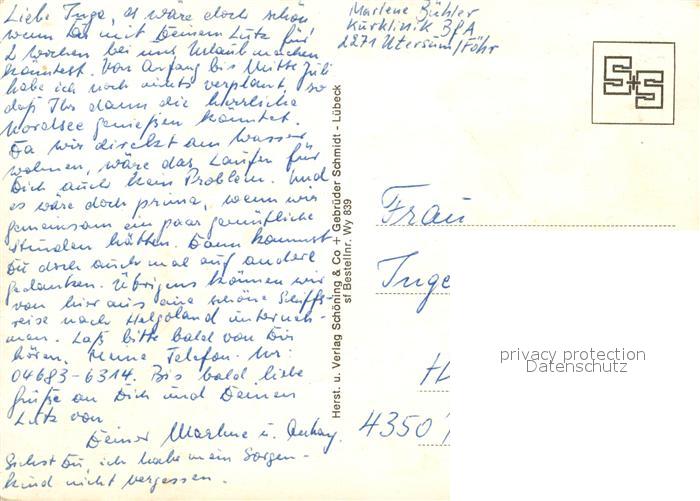 Liebe Inge, es wäre doch schön
wenn Du mit Deinem Lutz für
2 Wochen bei uns Urlaub machen
könntest. Von Anfang bis Mitte Juli
habe ich noch nichts verplant, so
daß Ihr dann die herrliche
Nordsee genießen könntet.
Da wir direkt am Wasser
wohnen, wäre das Laufen für
Dich auch kein Problem. Und
es wäre doch prima, wenn wir
gemeinsam ein paar gemütliche
Stunden hätten. Dann kommst
Du doch auch mal auf andere
Gedanken. Übrigens können wir
von hier aus eine schöne Schiffs-
reise nach Helgoland unterneh-
men. Laß bitte bald von Dir
hören. Meine Telefon-Nr:
04683-6314. Bis bald liebe
Grüße an Dich und Deinen
Lutz von
Deiner Marlene u.
Siehst Du, ich habe mein Sorgen-
kind nicht vergessen.
Marlene Bühler
Kurklinik BfA
2271 Utersum/Föhr
Herst. u. Verlag Schöning & Co + Gebrüder Schmidt - Lübeck
sf Bestellnr. Wy 839
S+S
Frau
Inge
H
4350
privacy protection
Datenschutz